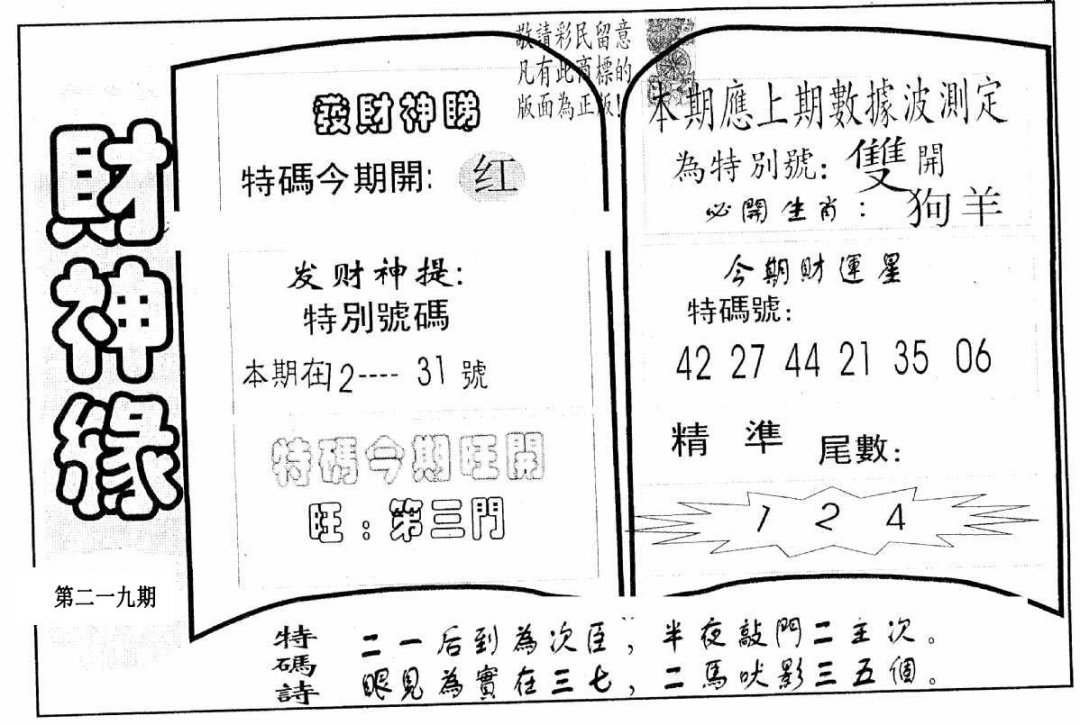 財神緣
第二一九期
敬請彩民留意
凡有此商標的
版面為正版!
發財神賜
特碼今期開: 红
发财神提:
特別號碼
本期在12---- 31 號
特碼今期旺開
旺:第三門
本期應上期數據波測定
為特別號: 雙開
必開生肖: 狗羊
今期財運星
特碼號:
42 27 44 21 35 06
精 準 尾數:
1 2 4
特碼詩
二一后到為次臣,半夜敲門二主次。
眼見為實在三七,二馬吠影三五個。